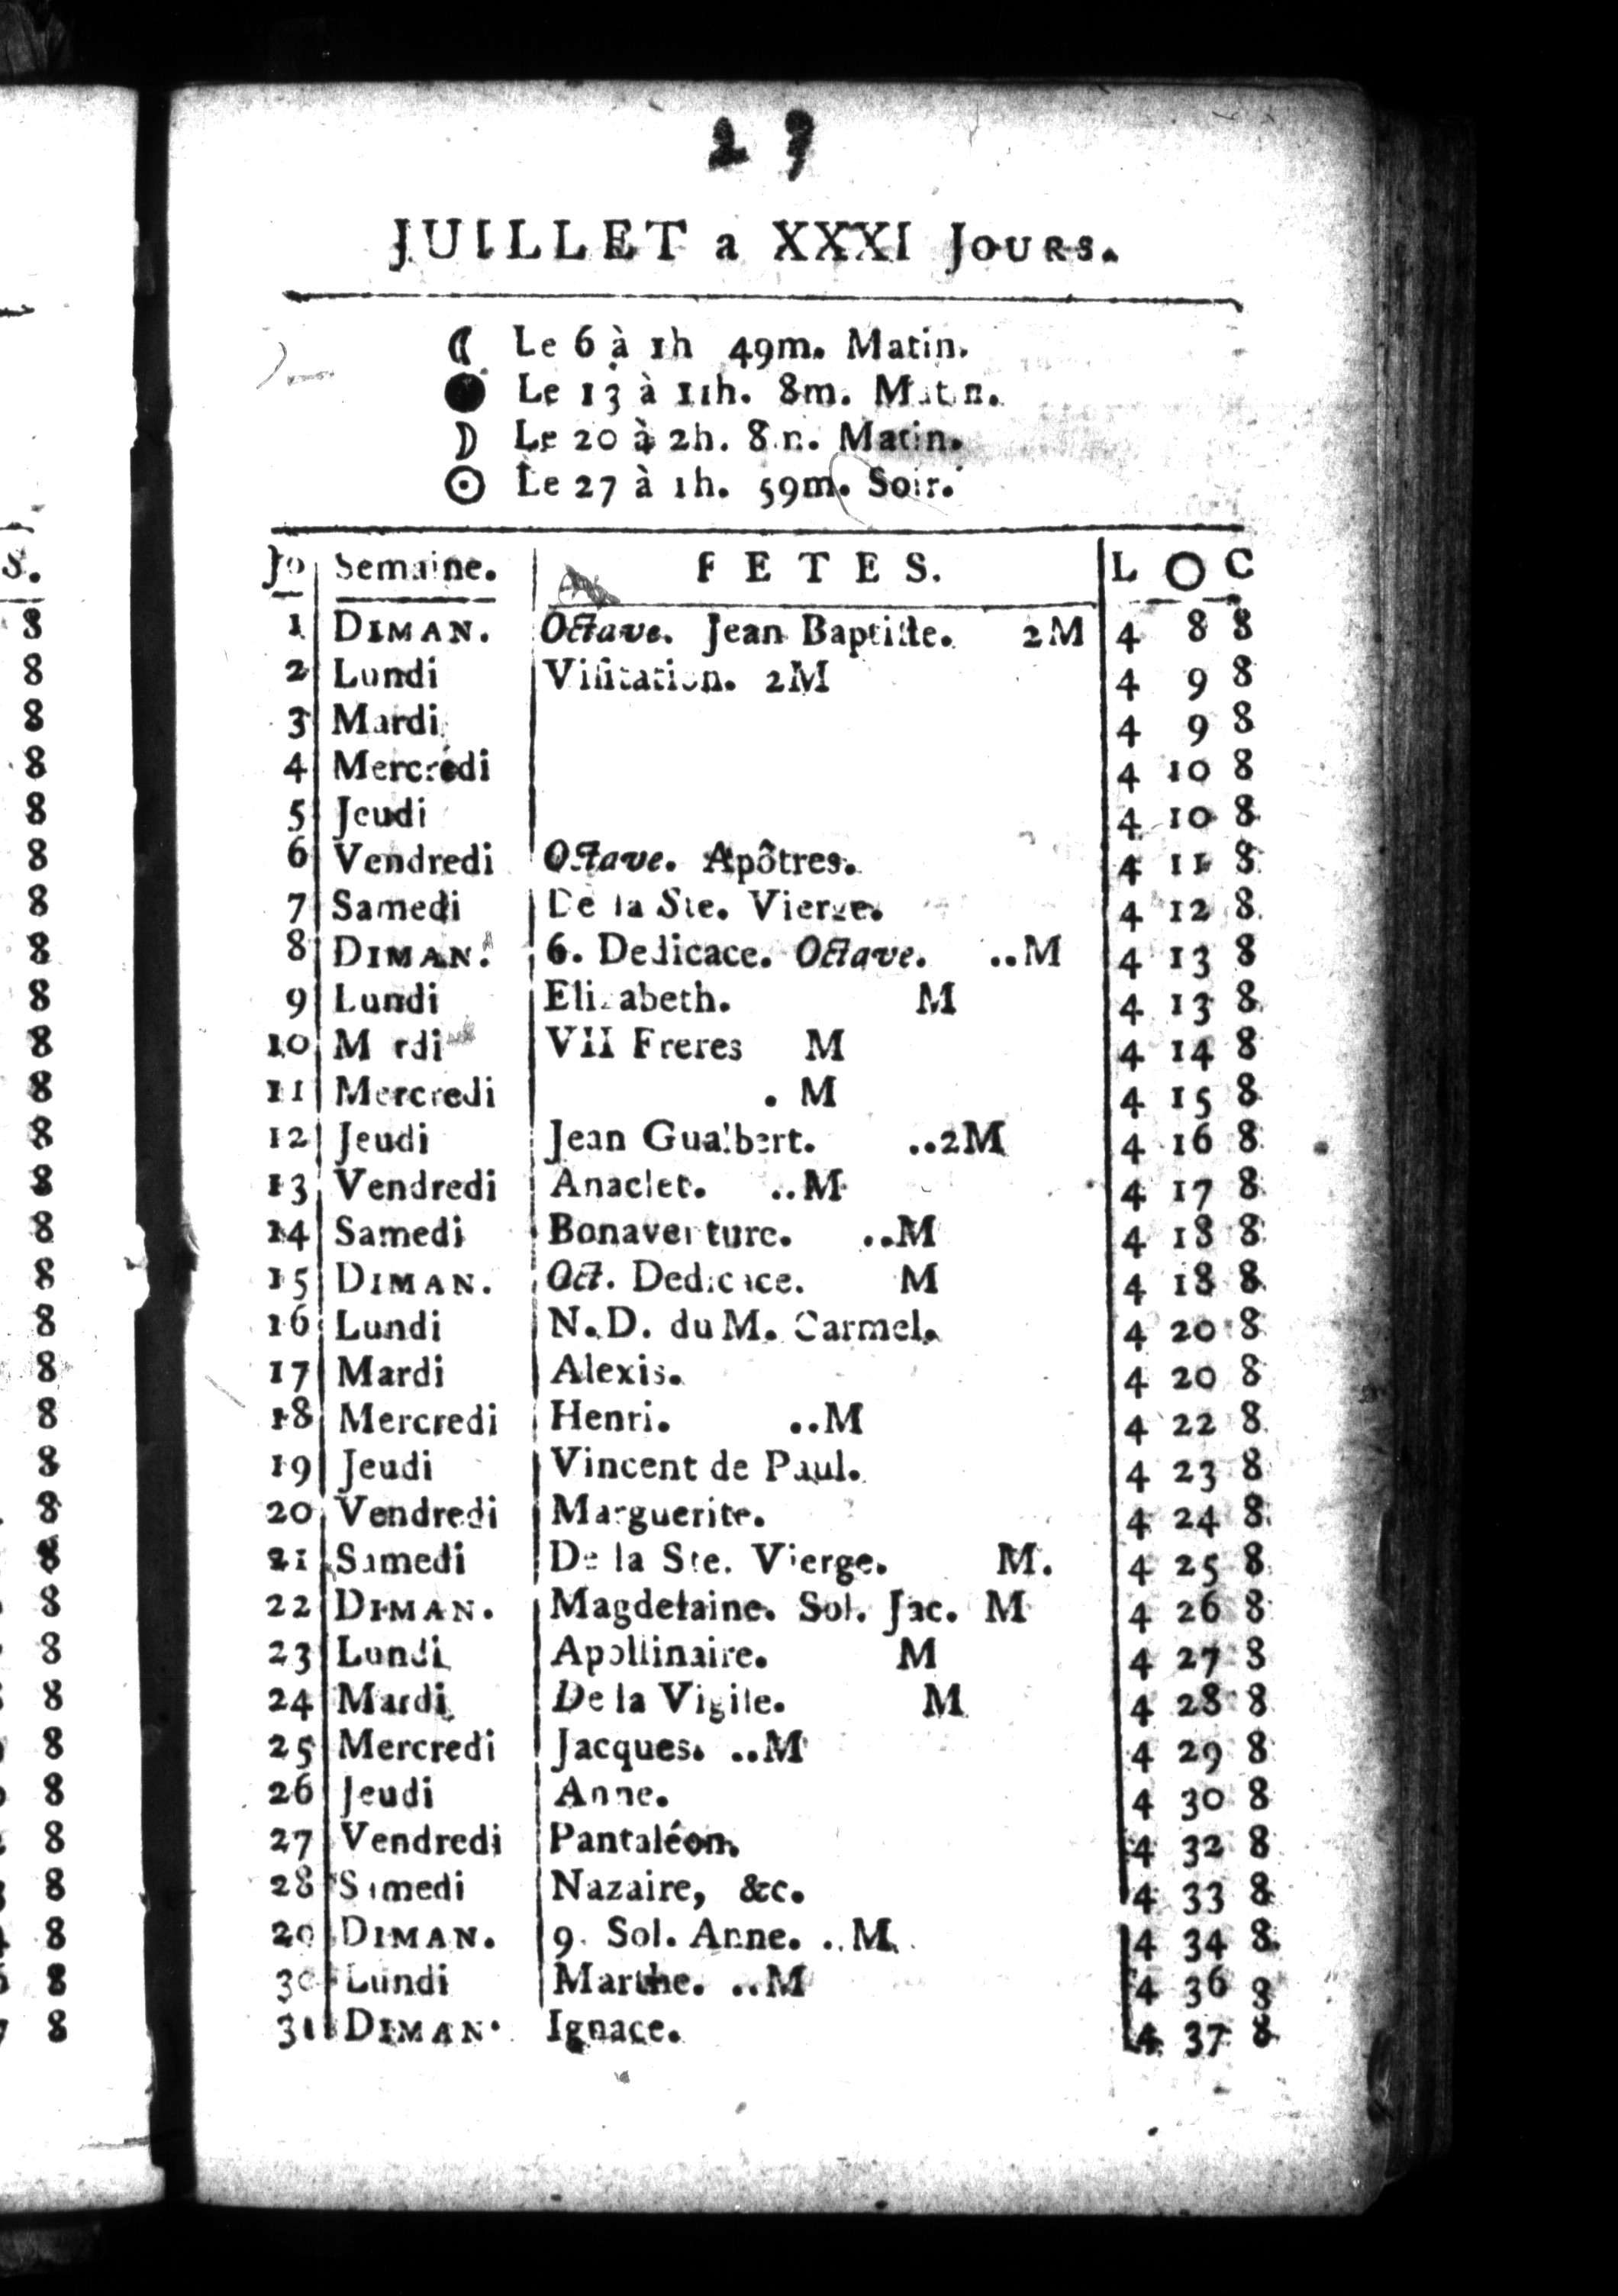 27
JUILLET a XXXI JOURS.
☾ Le 6 à 1h 49m. Matin.
● Le 13 à 11h. 8m. Matin.
☽ Le 20 à 2h. 8m. Matin.
☉ Le 27 à 1h. 59m. Soir.
Jo Semaine. FETES. L O C
1 DIMAN. Octave. Jean Baptiste. 2M 4 8 8
2 Lundi Visitation. 2M 4 9 8
3 Mardi 4 9 8
4 Mercredi 4 10 8
5 Jeudi 4 10 8
6 Vendredi Octave. Apôtres. 4 11 8
7 Samedi De la Ste. Vierge. 4 12 8
8 DIMAN. 6. Dedicace. Octave. ..M 4 13 8
9 Lundi Elizabeth. M 4 13 8
10 Mardi VII Freres M 4 14 8
11 Mercredi . M 4 15 8
12 Jeudi Jean Gualbert. ..2M 4 16 8
13 Vendredi Anaclet. ..M 4 17 8
14 Samedi Bonaventure. ..M 4 18 8
15 DIMAN. Oct. Dedicace. M 4 18 8
16 Lundi N.D. du M. Carmel. 4 20 8
17 Mardi Alexis. 4 20 8
18 Mercredi Henri. ..M 4 22 8
19 Jeudi Vincent de Paul. 4 23 8
20 Vendredi Marguerite. 4 24 8
21 Samedi De la Ste. Vierge. M. 4 25 8
22 DIMAN. Magdelaine. Sol. Jac. M 4 26 8
23 Lundi Apollinaire. M 4 27 8
24 Mardi De la Vigile. M 4 28 8
25 Mercredi Jacques. ..M 4 29 8
26 Jeudi Anne. 4 30 8
27 Vendredi Pantaléon. 4 32 8
28 Samedi Nazaire, &c. 4 33 8
29 DIMAN. 9. Sol. Anne. ..M. 4 34 8
30 Lundi Marthe. ..M 4 36 8
31 DIMAN. Ignace. 4 37 8